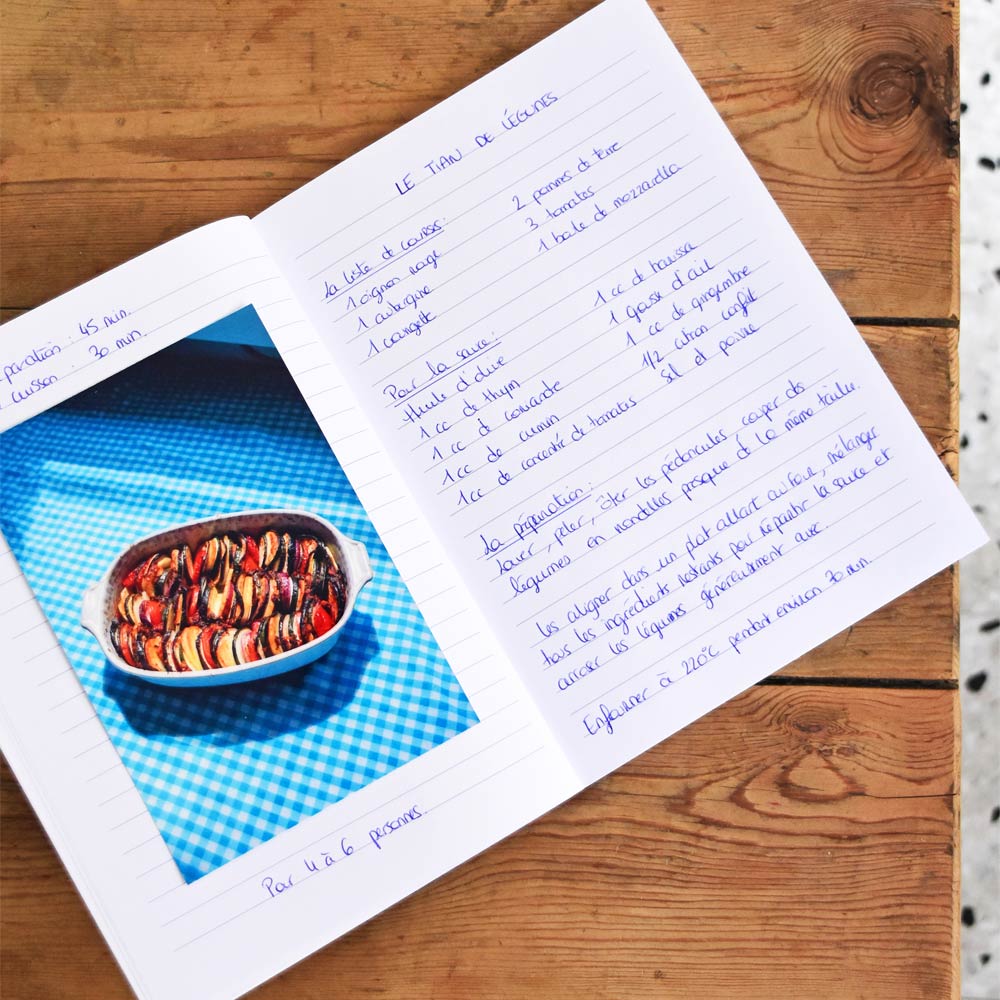 paration : 45 min.
cuisson : 30 min.
Pour 4 à 6 personnes.
LE TIAN DE LÉGUMES
La liste de courses:
1 oignon rouge
1 aubergine
1 courgette
2 pommes de terre
3 tomates
1 boule de mozzarella
Pour la sauce:
Huile d'olive
1 cc de thym
1 cc de coriandre
1 cc de cumin
1 cc de concentré de tomates
1 cc de harissa
1 gousse d'ail
1 cc de gingembre
1/2 citron confit
Sel et poivre
La préparation:
Laver, peler, ôter les pédoncules couper des
légumes en rondelles presque de la même taille.
Les aligner dans un plat allant au four, mélanger
tous les ingrédients restants pour répartir la sauce et
arroser les légumes généreusement avec.
Enfourner à 220°C pendant environ 30 min.